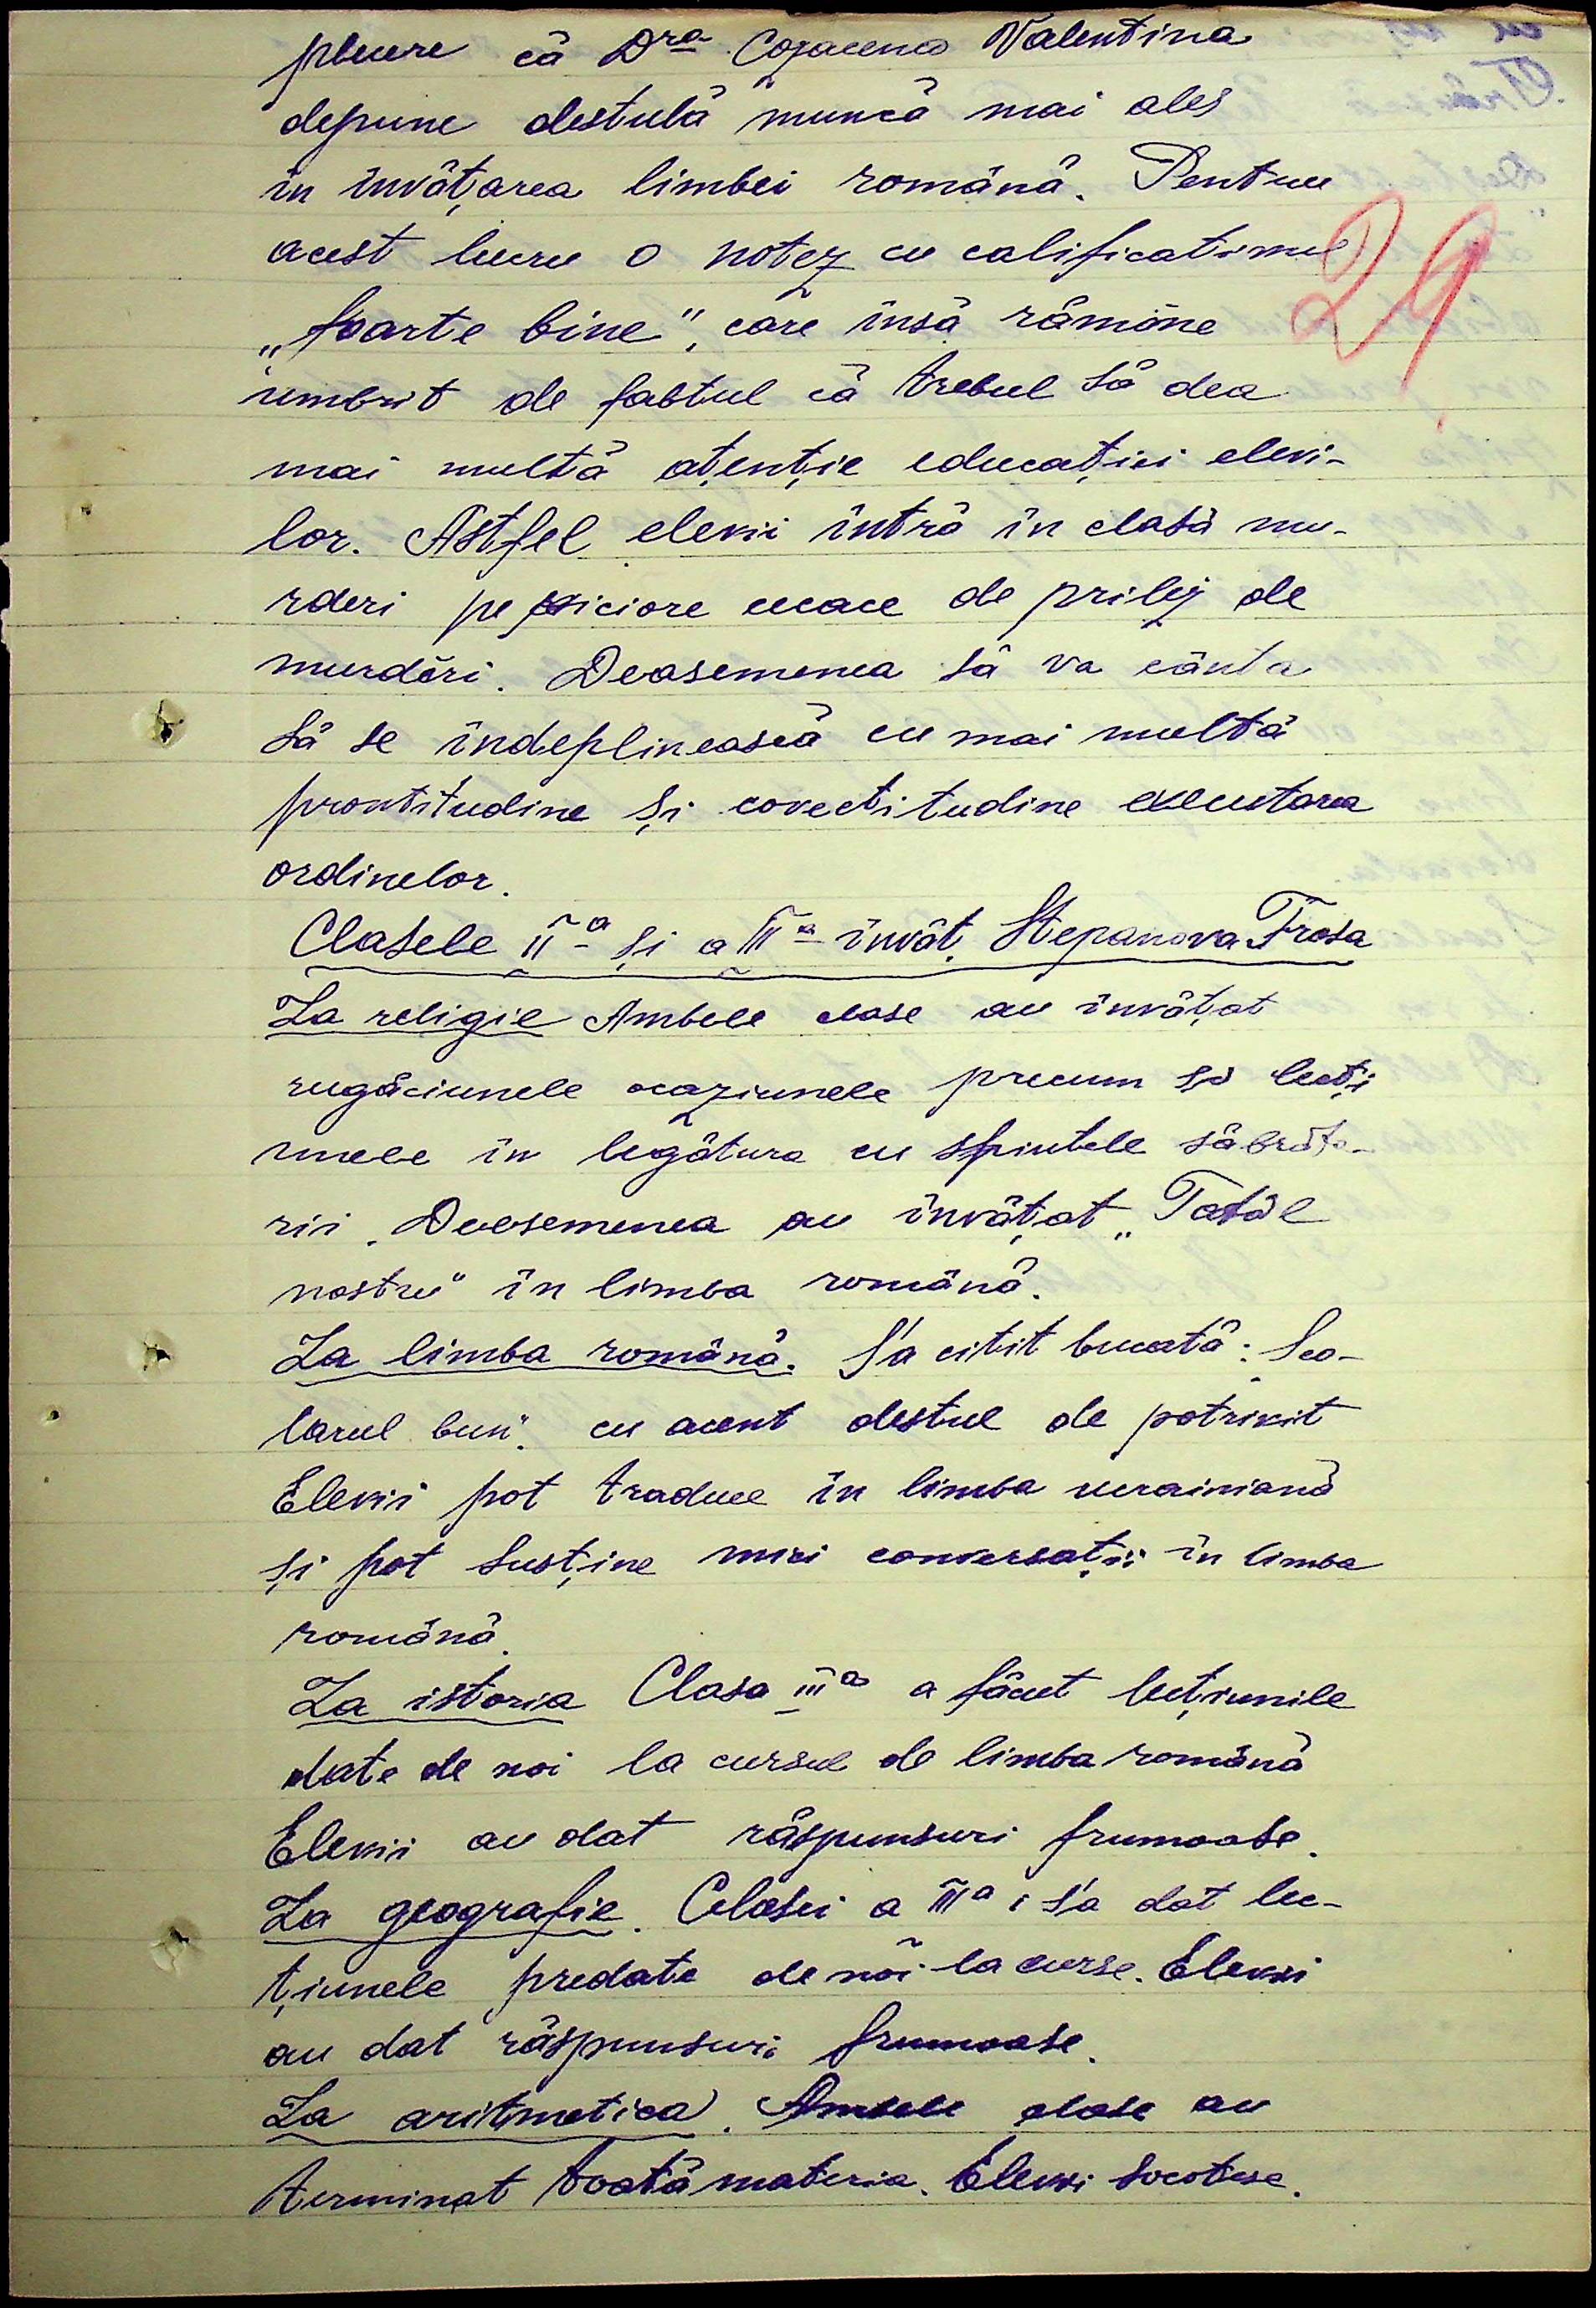 plcere că Dra Cojacena Valentina
depune destulă muncă mai ales
în învățarea limbei română. Pentru
29
acest lucru o notez cu calificativul
„foarte bine", care însă rămâne
umbrit de fabtul că trebul să dea
mai multă atenție educației elevi-
lor. Astfel elevii intră în clasă mu-
rderi pe piciore ucace de prilej de
murdări. Deasemenea să va cânta
să se îndeplinească cu mai multă
prontitudine și corectitudine executarea
ordinelor.
Clasele II-a și a III-a învăț. Stepanova Frosa
La religie Ambele clase au învățat
rugăciunele ocaziunele precum și lecți
unele în legătura cu sfintele sărbăto-
rii. Deasemenea au învățat „Tatăl
nostru" în limba română.
La limba română. S'a citit bucată: Sco-
larul bun". cu acent destul de potrivit
Elevii pot traduce în limba ucrainiană
și pot susține mici conversații în limba
română.
La istoria Clasa III a a făcut lecțiunile
date de noi la cursul de limba română
Elevii au dat răspunsuri frumoase.
La geografie. Clasei a III a i s'a dat lec-
țiunele predate de noi la curse. Elevii
au dat răspunsuri frumoase.
La aritmetica. Ambele clase au
terminat toată materia. Elevii socotesc.